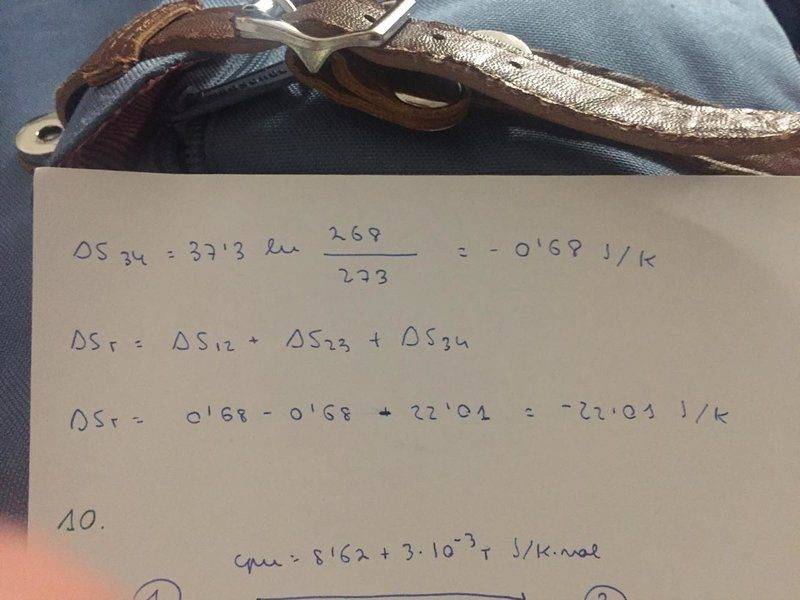 ΔS34 = 37'3 ln 268/273 = - 0'68 J/K
ΔST = ΔS12 + ΔS23 + ΔS34
ΔST = 0'68 - 0'68 - 22'01 = -22'01 J/K
10.
cpm = 8'62 + 3·10^-3 T J/K·mol
1 2